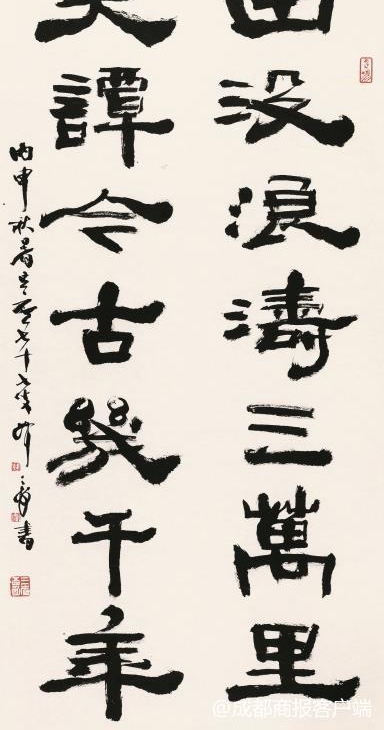 出没浪濤三萬里
笑譚今古幾千年
丙申秋 七十 書
@成都商报客户端